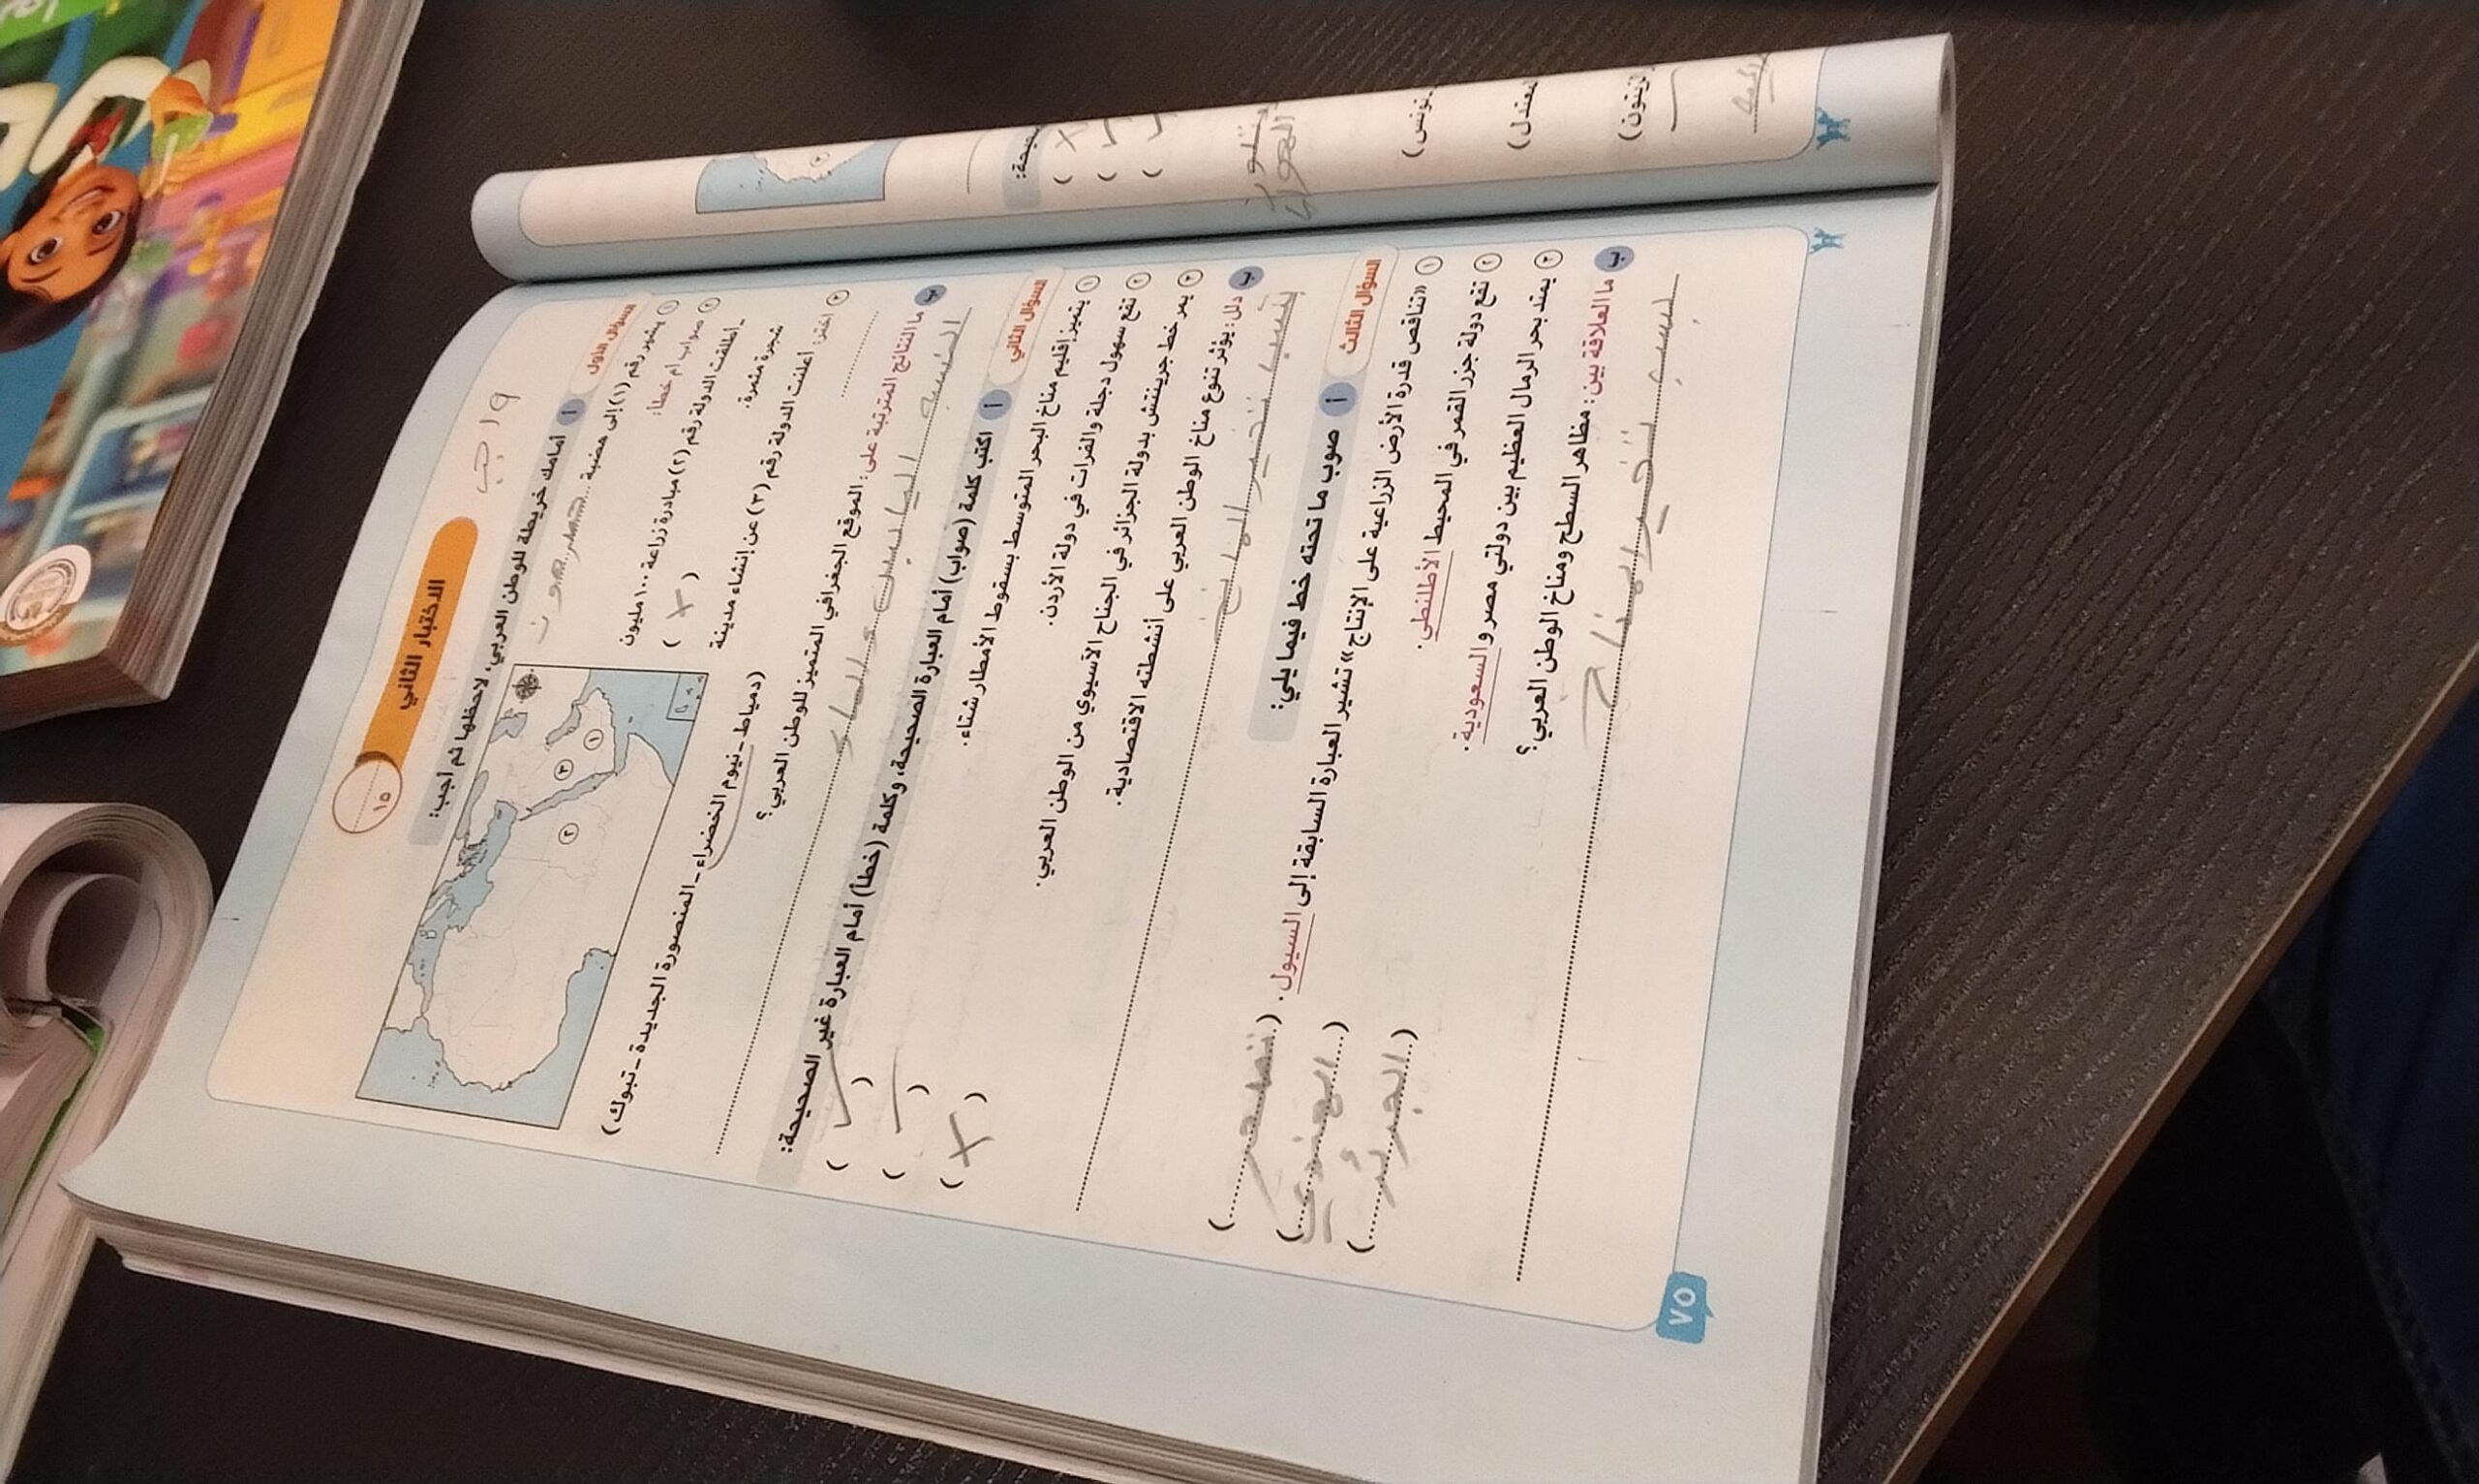 الاختبار الثاني
١٥
واجب
السؤال الأول
أ أمامك خريطة للوطن العربي، لاحظها ثم أجب:
١ يشير رقم (١) إلى هضبة حضرموت
٢ صواب أم خطأ:
ـ أطلقت الدولة رقم (٢) مبادرة زراعة ١٠٠ مليون
شجرة مثمرة. (X)
٣ اختر: أعلنت الدولة رقم (٣) عن إنشاء مدينة
(دمياط ـ نيوم الخضراء ـ المنصورة الجديدة ـ تبوك)
١
٢
٣
ب ما النتائج المترتبة على: الموقع الجغرافي المتميز للوطن العربي؟
السؤال الثاني
أ اكتب كلمة (صواب) أمام العبارة الصحيحة، وكلمة (خطأ) أمام العبارة غير الصحيحة:
١ يتميز إقليم مناخ البحر المتوسط بسقوط الأمطار شتاء. (✓)
٢ تقع سهول دجلة والفرات في دولة الأردن. (✓)
٣ يمر خط جرينتش بدولة الجزائر في الجناح الآسيوي من الوطن العربي. (X)
ب دلل: يؤثر تنوع مناخ الوطن العربي على أنشطته الاقتصادية.
بسبب تغير المناخ
السؤال الثالث
أ صوب ما تحته خط فيما يلي:
١ «تناقص قدرة الأرض الزراعية على الإنتاج» تشير العبارة السابقة إلى السيول. (تصحر)
٢ تقع دولة جزر القمر في المحيط الأطلنطي. (الهندي)
٣ يمتد بحر الرمال العظيم بين دولتي مصر والسعودية. (الجزائر)
ب ما العلاقة بين: مظاهر السطح ومناخ الوطن العربي؟
بسبب تغير المناخ
٧٥
(X)
(✓)
(✓)